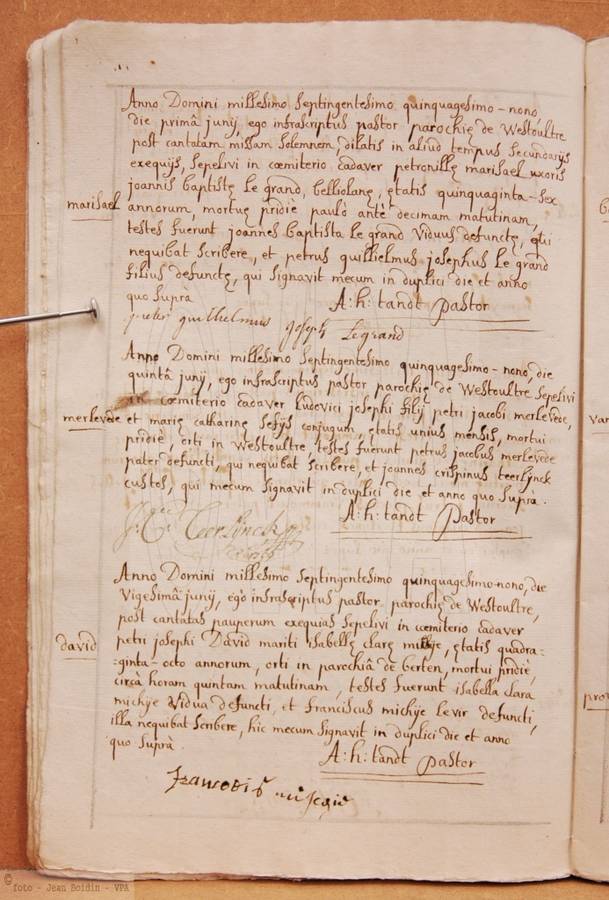 Anno Domini millesimo septingentesimo quinquagesimo-nono,
die primâ junij, ego infrascriptus pastor parochię de Westoultre
post cantatam missam solemnem, dilatis in aliud tempus secundarijs
exequijs, sepelivi in cœmiterio cadaver petronillę marisael uxoris
joannis baptistę le grand, belliolanę, ętatis quinquaginta-sex
marisael
annorum, mortuę pridie paulò antè decimam matutinam,
testes fuerunt joannes baptista le grand viduus defunctę, qui
nequibat scribere, et petrus guillielmus josephus le grand
filius defunctę, qui signavit mecum in duplici die et anno
quo suprà
A:h: tandt pastor
pieter guilhelmus joseph Legrand
Anno Domini millesimo septingentesimo quinquagesimo-nono, die
quintâ junij, ego infrascriptus pastor parochię de Westoultre sepelivi
in cœmiterio cadaver ludovici josephi filij petri jacobi merlevede,
merlevede
et marię catharinę sefijs conjugum, ętatis unius mensis, mortui
pridie, orti in westoultre, testes fuerunt petrus jacobus merlevede
pater defuncti, qui nequibat scribere, et joannes crispinus teerlijnck
custos, qui mecum signavit in duplici die et anno quo suprà.
A:h: tandt pastor
J: C: Teerlynck
Anno Domini millesimo septingentesimo quinquagesimo-nono, die
vigesimâ junij, ego infrascriptus pastor parochię de Westoultre,
post cantatas pauperum exequias sepelivi in cœmiterio cadaver
david
petri josephi David mariti isabellę clarę, ętatis quadra-
-ginta-octo annorum, orti in parochiâ de berten, mortui pridiè,
circà horam quintam matutinam, testes fuerunt isabella clara
michije vidua defuncti, et franciscus michije levir defuncti,
illa nequibat scribere, hic mecum signavit in duplici die et anno
quo suprà.
A:h: tandt pastor
francois
© foto - Jean Boidin - VPA